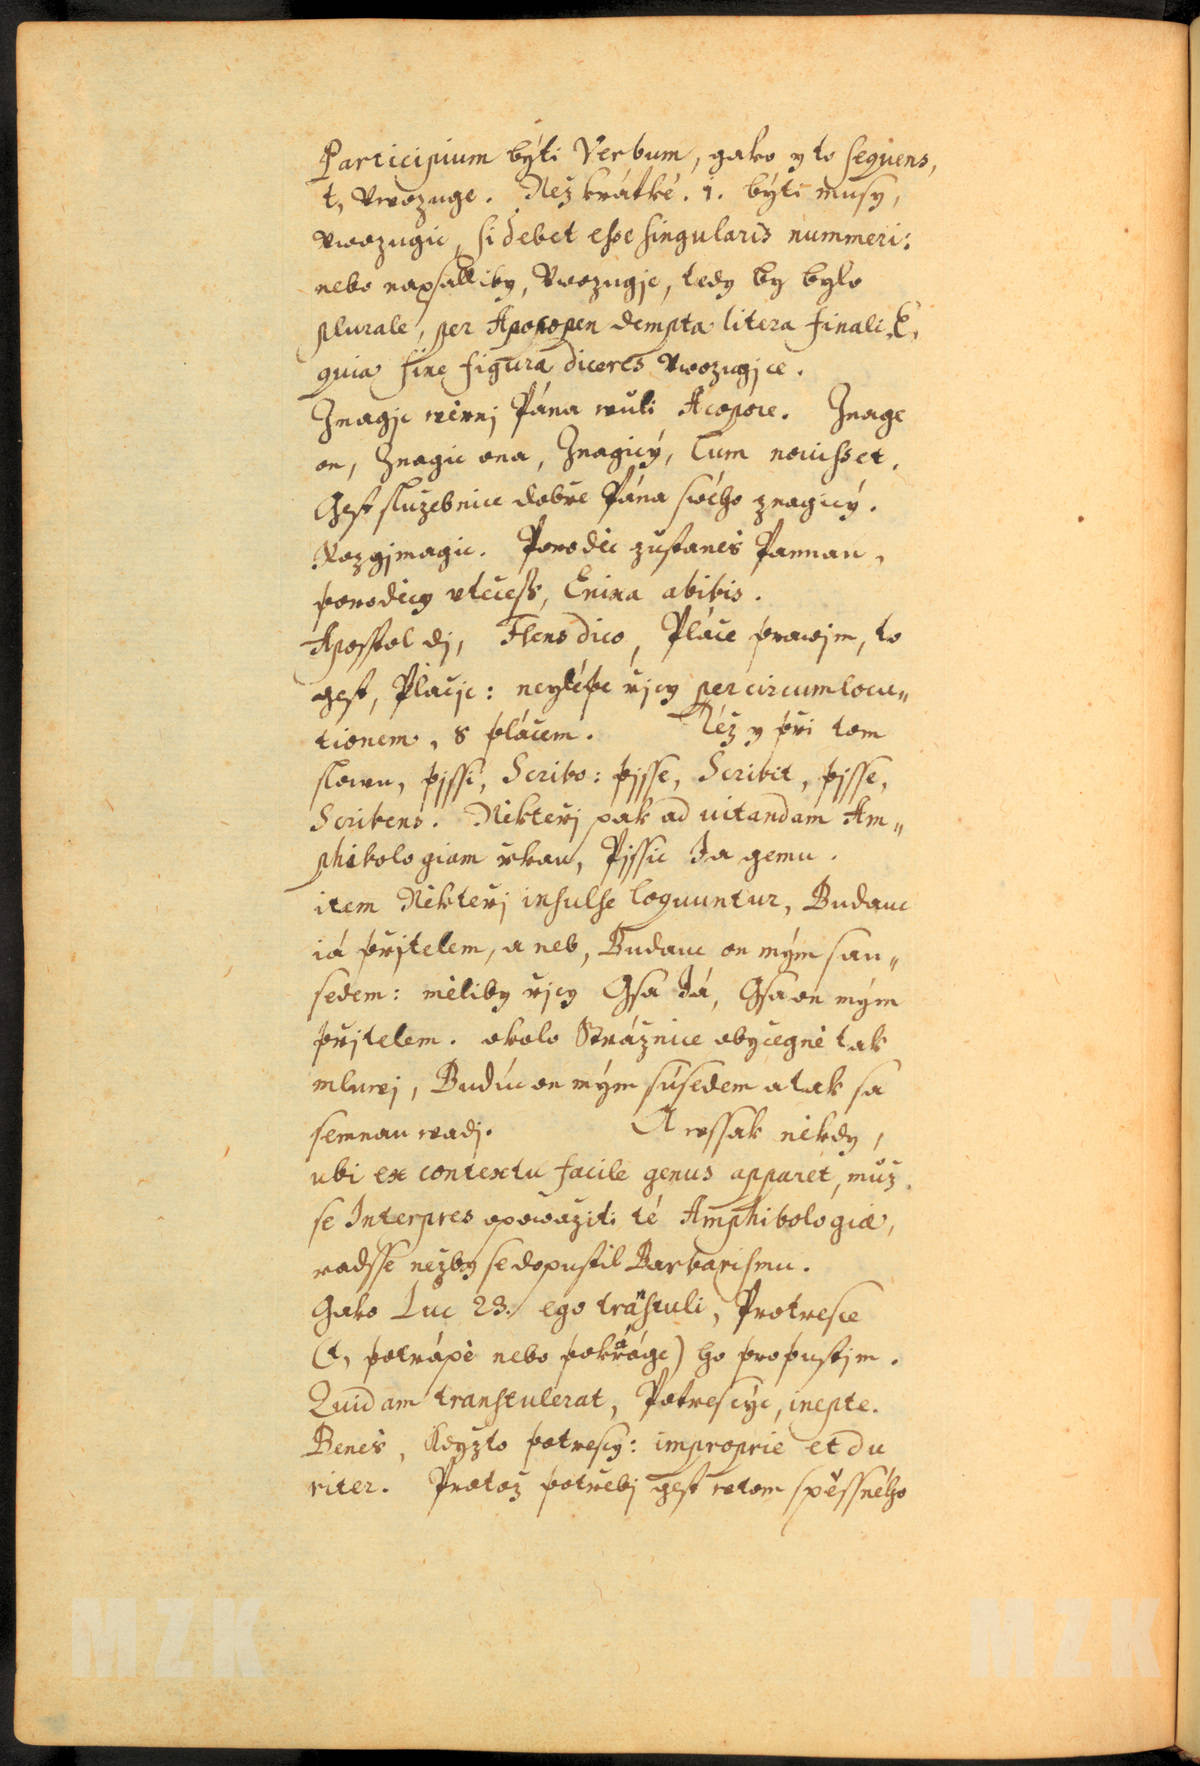 Participium býti Verbum, gako y to sequens,
t, Vwozuge. Než krátké. i. býti musy,
Vwozugic, si debet esse singularis nummeri:
nebo napsalliby, Vwozugjc, tedy by bylo
plurale, per Apocopen dempta litera finali E,
quia sine figura diceres Vwozugjce.
Znagjc wěrnj Pána wůli Acopore. Znage
on, Znagic ona, Znagicý, Cum nouisset.
Gest služebnice dobře Pána swého znagicý.
Rozgjmagic. Porodic zůstaneš Pannau,
porodicy vtečess, Enixa abibis.
Apostol dj, Flens dico, Pláče prawjm, to
gest, Plačjc: neylépe řjcy per circumlocu„
tionem, s pláčem. Též y při tom
slowu, pjssi, Scribo: pjsse, Scribit, pjsse,
Scribens. Někteřj pak ad uitandam Am„
phibologiam řkau, Pjssic Ja gemu.
item Někteřj insulse loquuntur, Budauc
iá přjtelem, a neb, Budauc on mým sau„
sedem: měliby řjcy Gsa Já, Gsa on mým
přjtelem. okolo Strážnice obyčegně tak
mluwj, Budúc on mým súsedem a tak sa
semnau wadj. A wssak někdy,
ubi ex contextu facile genus apparet, můž
se Interpres opowážiti té Amphibologiæ,
radsse nežby se dopustil Barbarismu.
Gako Luc 23. ego transtuli, Protresce
(t, potrápě nebo pokáráge) ho propustjm.
Quidam transtulerat, Potrescýc, inepte.
Beneš, Kdyžto potrescy: improprie et du
riter. Protož potřebj gest w tom spěssného
MZK
MZK